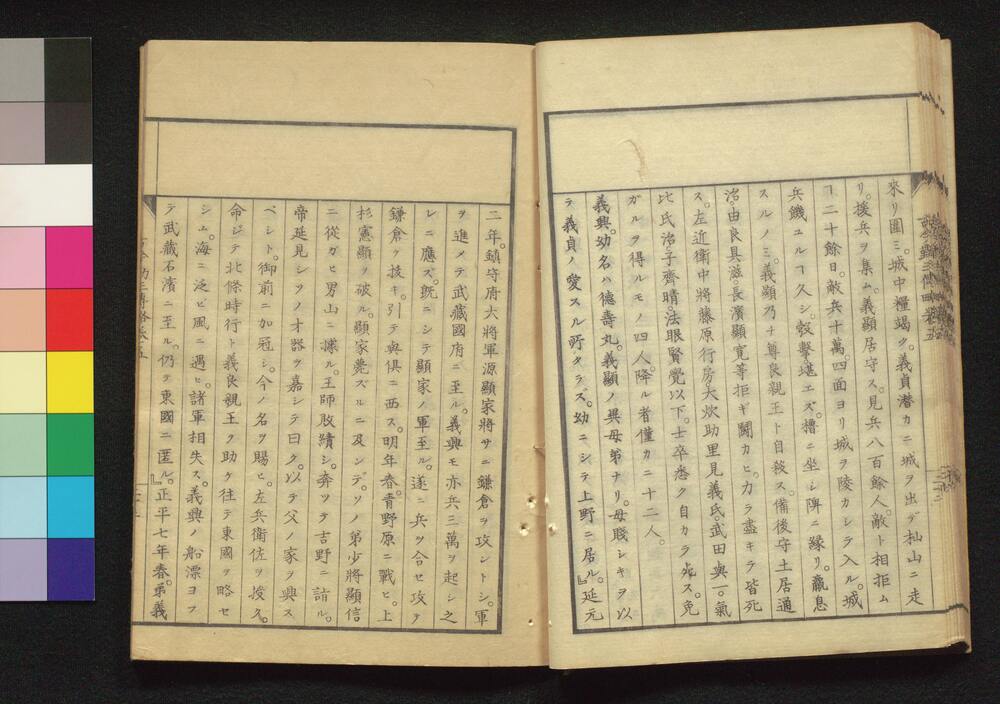 來リ圍ミ。城中糧竭ク。義貞潜カニ城ヲ出デ杣山ニ走
リ。援兵ヲ集ム。義顯居守ス。見兵八百餘人。敵ト相拒ム
ヿ二十餘日。敵兵十萬。四面ヨリ城ヲ陵カシテ入ル。城
兵饑ユルヿ久シ。彀擊堪エズ。櫓ニ坐シ陴ニ縁リ。喘息
スルノミ。義顯乃チ尊良親王ト自殺ス。備後守土居通
治。由良具滋。長濱顯寛等拒ギ鬪カヒ。力ラ盡キテ皆死
ス。左近衛中將藤原行房。大炊助里見義氏。武田與一。氣
比氏治。子齊晴。法眼賢覺以下。士卒悉ク自カラ死ス。免
ガルヲ得ルモノ四人。降ル者僅カニ十二人。
義興。幼名ハ德壽丸。義顯ノ異母弟ナリ。母賤シキヲ以
テ義貞ノ愛スル所タラズ。幼ニシテ上野ニ居ル。』延元
二年。鎮守府大將軍源顯家將サニ鎌倉ヲ攻ントシ。軍
ヲ進メテ武藏國府ニ至ル。義興モ亦兵三萬ヲ起シ之
レニ應ズ。旣ニシテ顯家ノ軍至ル。遂ニ兵ヲ合セ攻テ
鎌倉ヲ技キ。引テ與俱ニ西ス。明年春。青野原ニ戰ヒ。上
杉憲顯ヲ破ル。顯家薨ズルニ及ンデ。ソノ弟少將顯信
ニ從ガヒ男山ニ據ル。王師敗績シ。奔ツテ吉野ニ詣ル。
帝延見シソノ才器ヲ嘉シテ曰ク。以テ父ノ家ヲ興ス
ベシト。御前ニ加冠シ。今ノ名ヲ賜ヒ。左兵衛佐ヲ授ク。
命ジテ北條時行ト義良親王ヲ助ケ往テ東國ヲ略セ
シム。海ニ泛ビ風ニ遇ヒ。諸軍相失ス。義興ノ船漂ヨフ
テ武藏石濱ニ至ル。仍テ東國ニ匿ル。』正平七年春。弟義